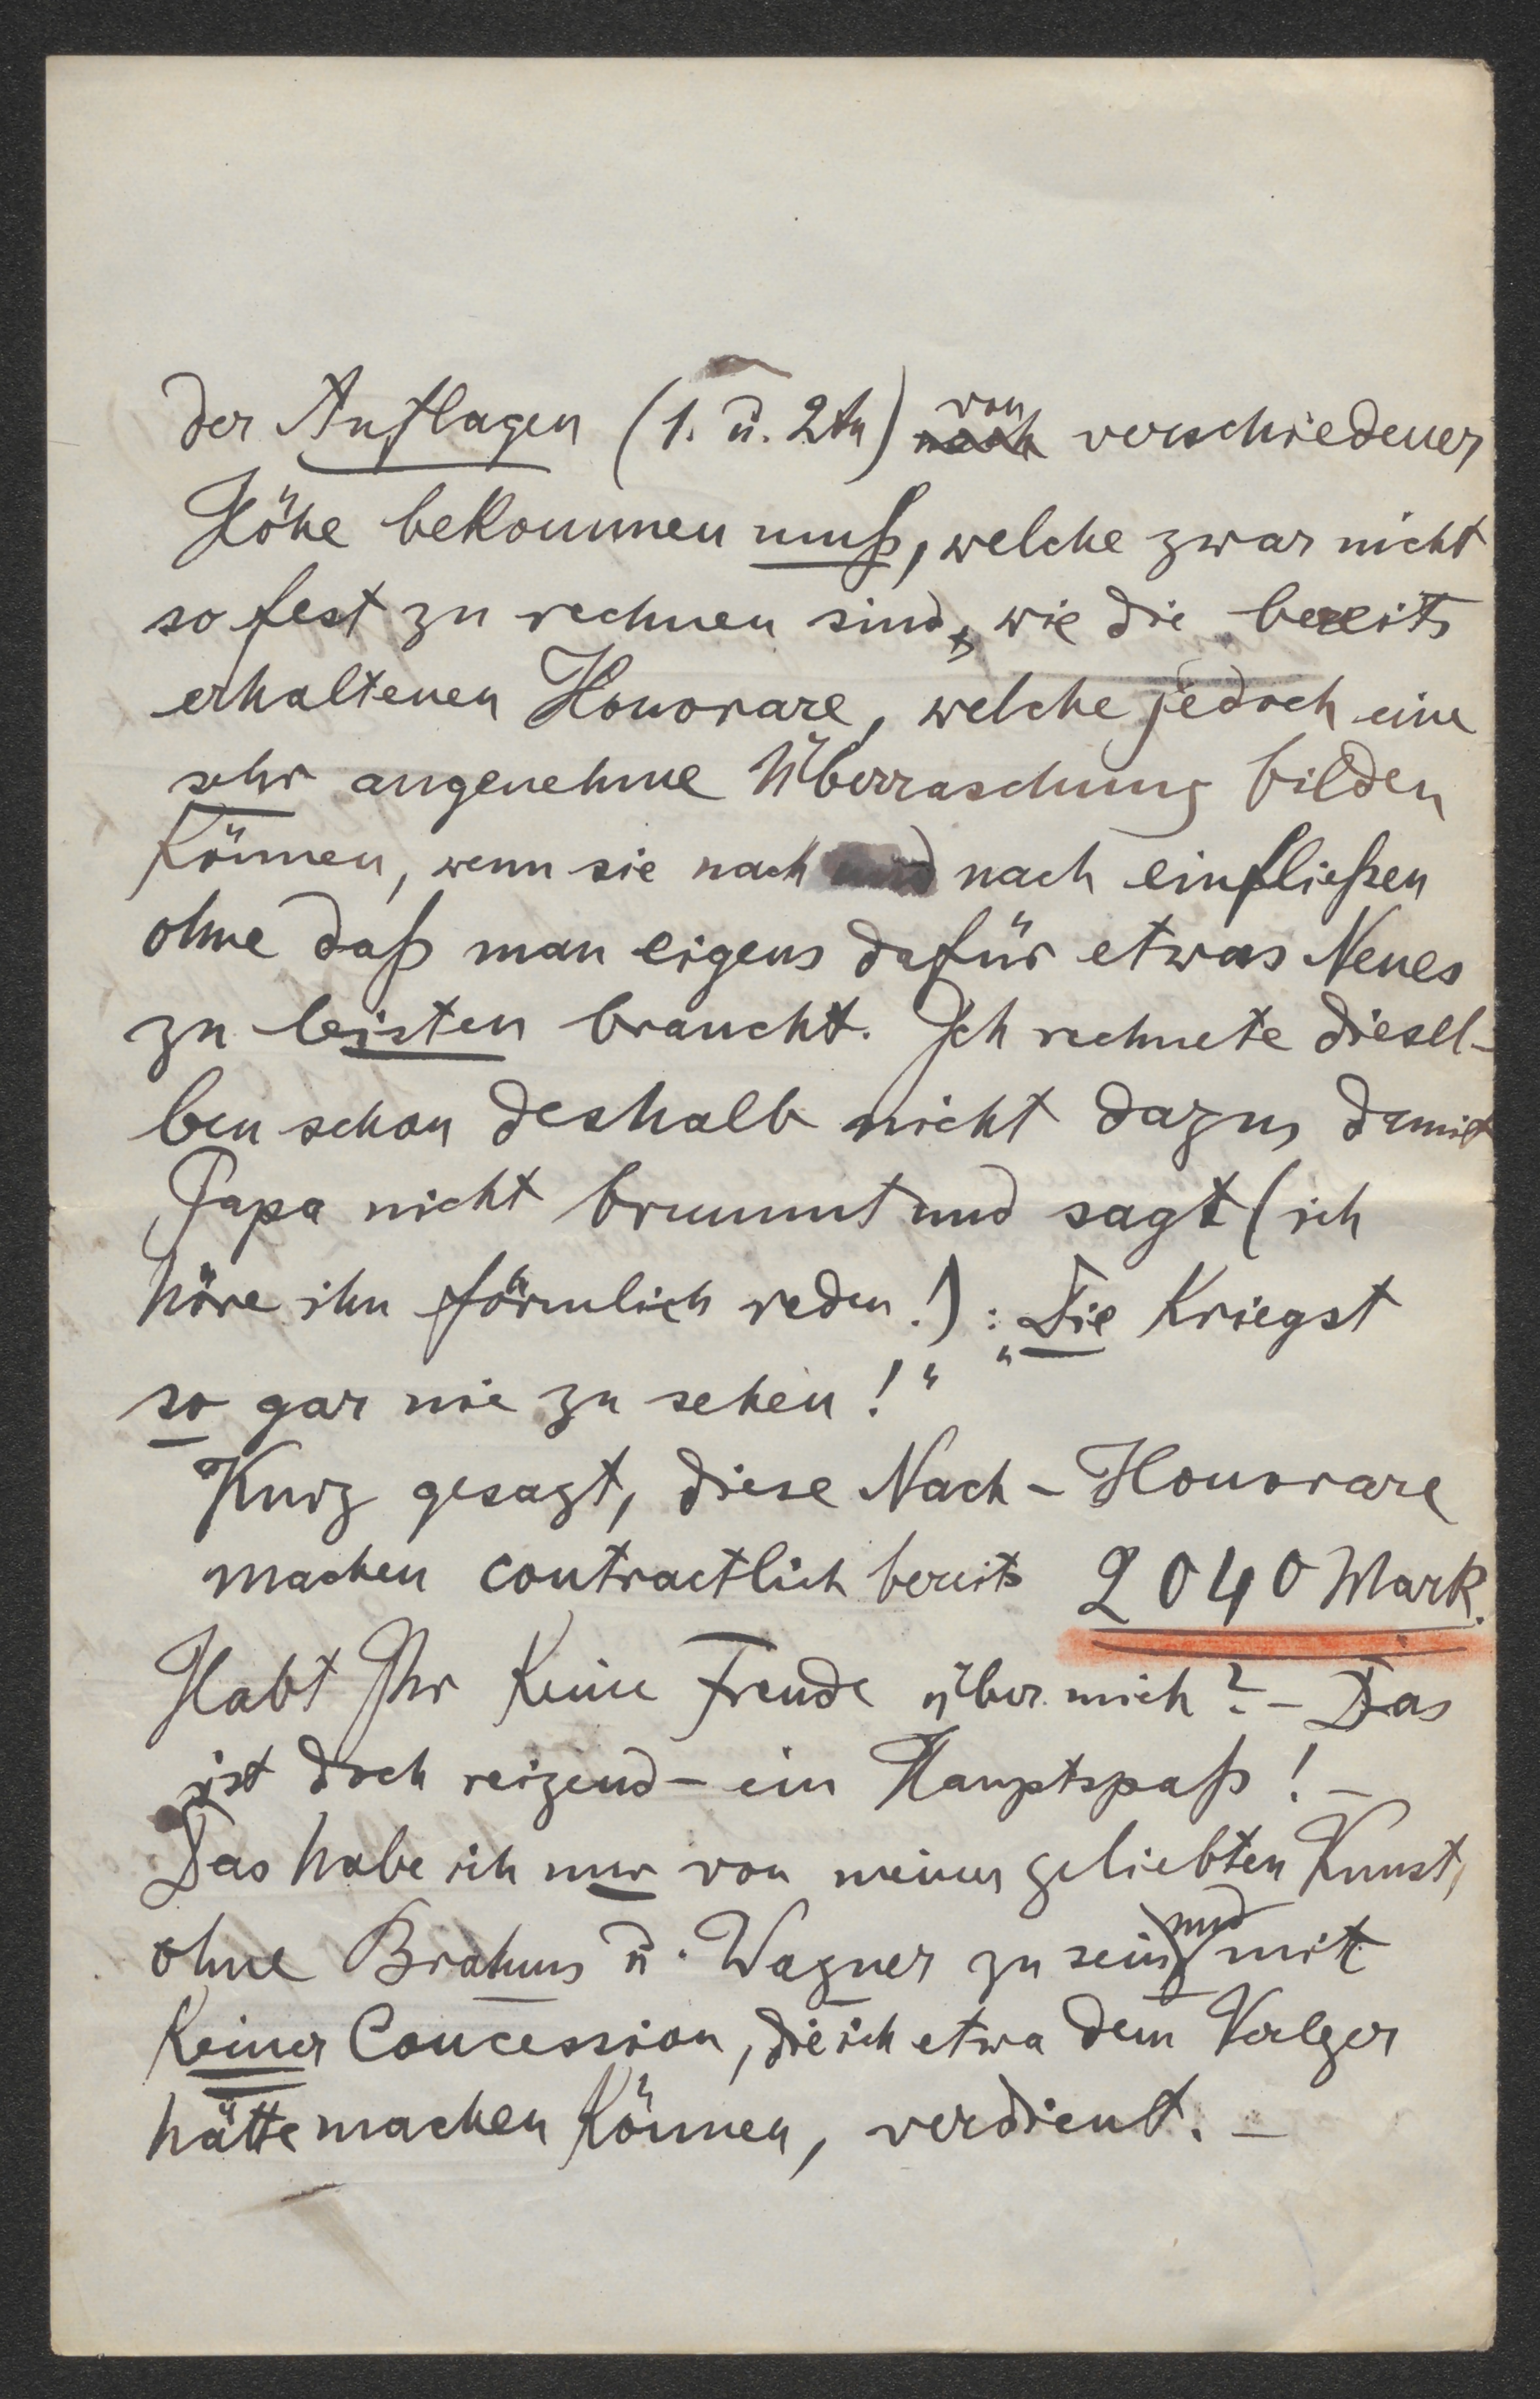 der Auflagen (1. u. 2tn) von nach verschiedener
Höhe bekommen muß, welche zwar nicht
so fest zu rechnen sind, wie die bereits
erhaltenen Honorare, welche jedoch eine
sehr angenehme Überraschung bilden
können, wenn sie nach und nach einfließen
ohne daß man eigens dafür etwas Neues
zu leisten braucht. Ich rechnete diesel-
ben schon deshalb nicht dazu, damit
Papa nicht brummt und sagt (ich
höre ihn förmlich reden!): „Die kriegst
so gar nie zu sehen!"
Kurz gesagt, diese Nach-Honorare
machen contractlich bereits 2040 Mark.
Habt Ihr keine Freude über mich? – Das
ist doch reizend – ein Hauptspaß! –
Das habe ich nur von meiner geliebten Kunst,
ohne Brahms u. Wagner zu sein und mit
keiner Concession, die ich etwa dem Verleger
hätte machen können, verdient. –